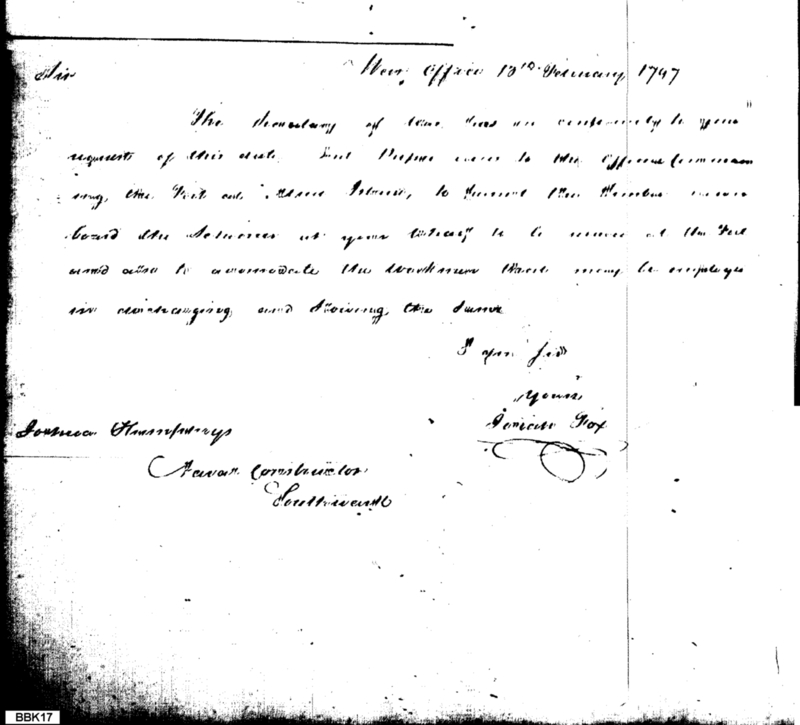 Sir War Office 13th February 1797
The Secretary of War has in conformity to your
request of this date sent Papers over to the Officer Command
ing, the Fort on Island, to permit the Timber now on
board the Schooner at your Wharf to be at the Fort
and also to accomodate the workmen that may be employed
in discharging and Stowing, the same
I am Sir
Yours
Josiah Fox
Joshua Humphreys
Naval Constructor
Southwark
BBK17